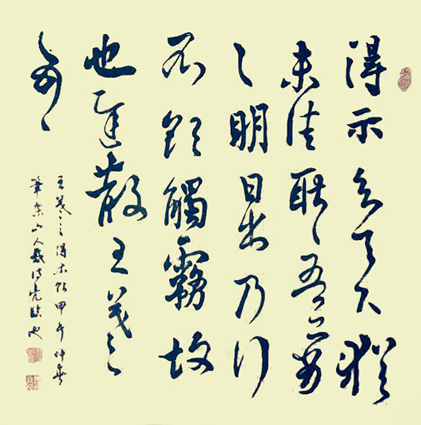 得示知足下猶
未佳耿々吾亦劣
々明日出乃行
不欲觸霧故
也遲散王羲之
頓首
王羲之得示帖甲午仲春
山人